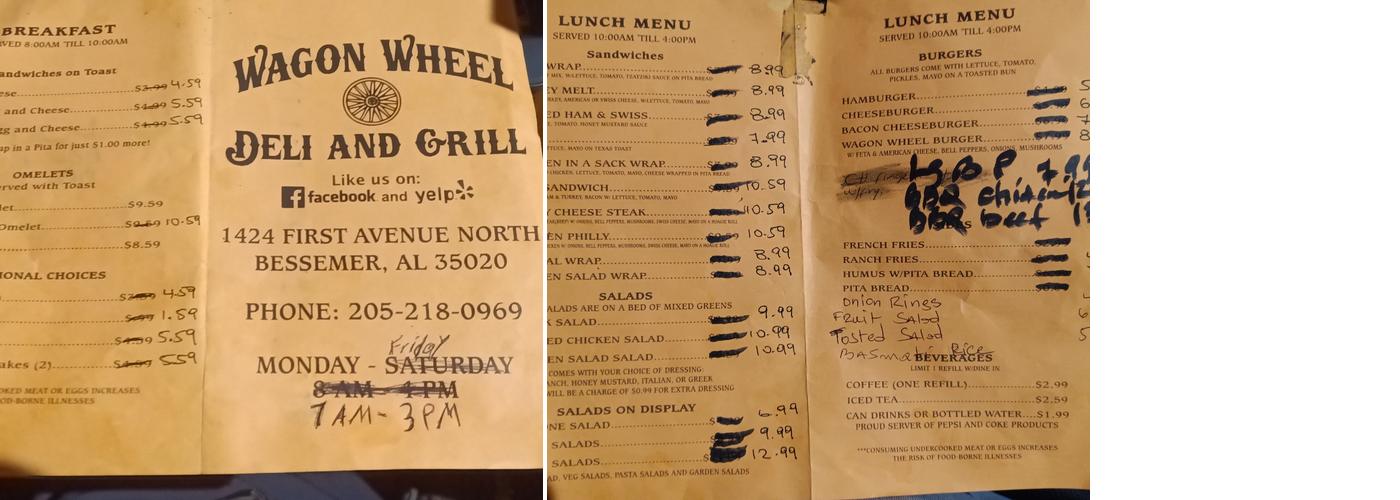 BREAKFAST
SERVED 8:00AM 'TILL 10:00AM
Sandwiches on Toast
$3.99 4.59
and Cheese $4.99 5.59
gg and Cheese $4.99 5.59
ap in a Pita for just $1.00 more!
OMELETS
erved with Toast
$9.59
Omelet $9.59 10.59
$8.59
IONAL CHOICES
4.59
1.59
5.59
akes (2) $4.99 5.59
OOKED MEAT OR EGGS INCREASES
OOD-BORNE ILLNESSES
WAGON WHEEL
DELI AND GRILL
Like us on:
facebook and yelp
1424 FIRST AVENUE NORTH
BESSEMER, AL 35020
PHONE: 205-218-0969
Friday
MONDAY - SATURDAY
8 AM - 4 PM
7 AM - 3 PM
LUNCH MENU
SERVED 10:00AM 'TILL 4:00PM
Sandwiches
WRAP 8.99
MIX, W/LETTUCE, TOMATO, TZATZIKI SAUCE ON PITA BREAD
EY MELT 8.99
AMERICAN OR SWISS CHEESE, W/LETTUCE, TOMATO, MAYO
ED HAM & SWISS 8.99
TOMATO, HONEY MUSTARD SAUCE
7.99
MAYO ON TEXAS TOAST
EN IN A SACK WRAP 8.99
CHICKEN, LETTUCE, TOMATO, CHEESE WRAPPED IN PITA BREAD
SANDWICH 10.59
& TURKEY, BACON W/ LETTUCE, TOMATO, MAYO
Y CHEESE STEAK 10.59
W/ ONIONS, BELL PEPPERS, MUSHROOMS, SWISS CHEESE, MAYO ON A HOAGIE ROLL
EN PHILLY 10.59
W/ ONIONS, BELL PEPPERS, MUSHROOMS, SWISS CHEESE, MAYO ON A HOAGIE ROLL
AL WRAP 8.99
EN SALAD WRAP 8.99
SALADS
ALADS ARE ON A BED OF MIXED GREENS
K SALAD 9.99
ED CHICKEN SALAD 10.99
EN SALAD SALAD 10.99
COMES WITH YOUR CHOICE OF DRESSING:
ANCH, HONEY MUSTARD, ITALIAN, OR GREEK
WILL BE A CHARGE OF $0.99 FOR EXTRA DRESSING
SALADS ON DISPLAY
ONE SALAD 6.99
SALADS 9.99
SALADS 12.99
AD, VEG SALADS, PASTA SALADS AND GARDEN SALADS
LUNCH MENU
SERVED 10:00AM 'TILL 4:00PM
BURGERS
ALL BURGERS COME WITH LETTUCE, TOMATO,
PICKLES, MAYO ON A TOASTED BUN
HAMBURGER 5
CHEESEBURGER 6
BACON CHEESEBURGER 7
WAGON WHEEL BURGER 8
W/ FETA & AMERICAN CHEESE, BELL PEPPERS, ONIONS, MUSHROOMS
7.99
BBQ chicken
BBQ beef
FRENCH FRIES
RANCH FRIES
HUMUS W/PITA BREAD
PITA BREAD
Onion Rings
Fruit Salad
Tosted Salad
BASmati Rice
BEVERAGES
LIMIT 1 REFILL W/DINE IN
COFFEE (ONE REFILL) $2.99
ICED TEA $2.59
CAN DRINKS OR BOTTLED WATER $1.99
PROUD SERVER OF PEPSI AND COKE PRODUCTS
***CONSUMING UNDERCOOKED MEAT OR EGGS INCREASES
THE RISK OF FOOD-BORNE ILLNESSES